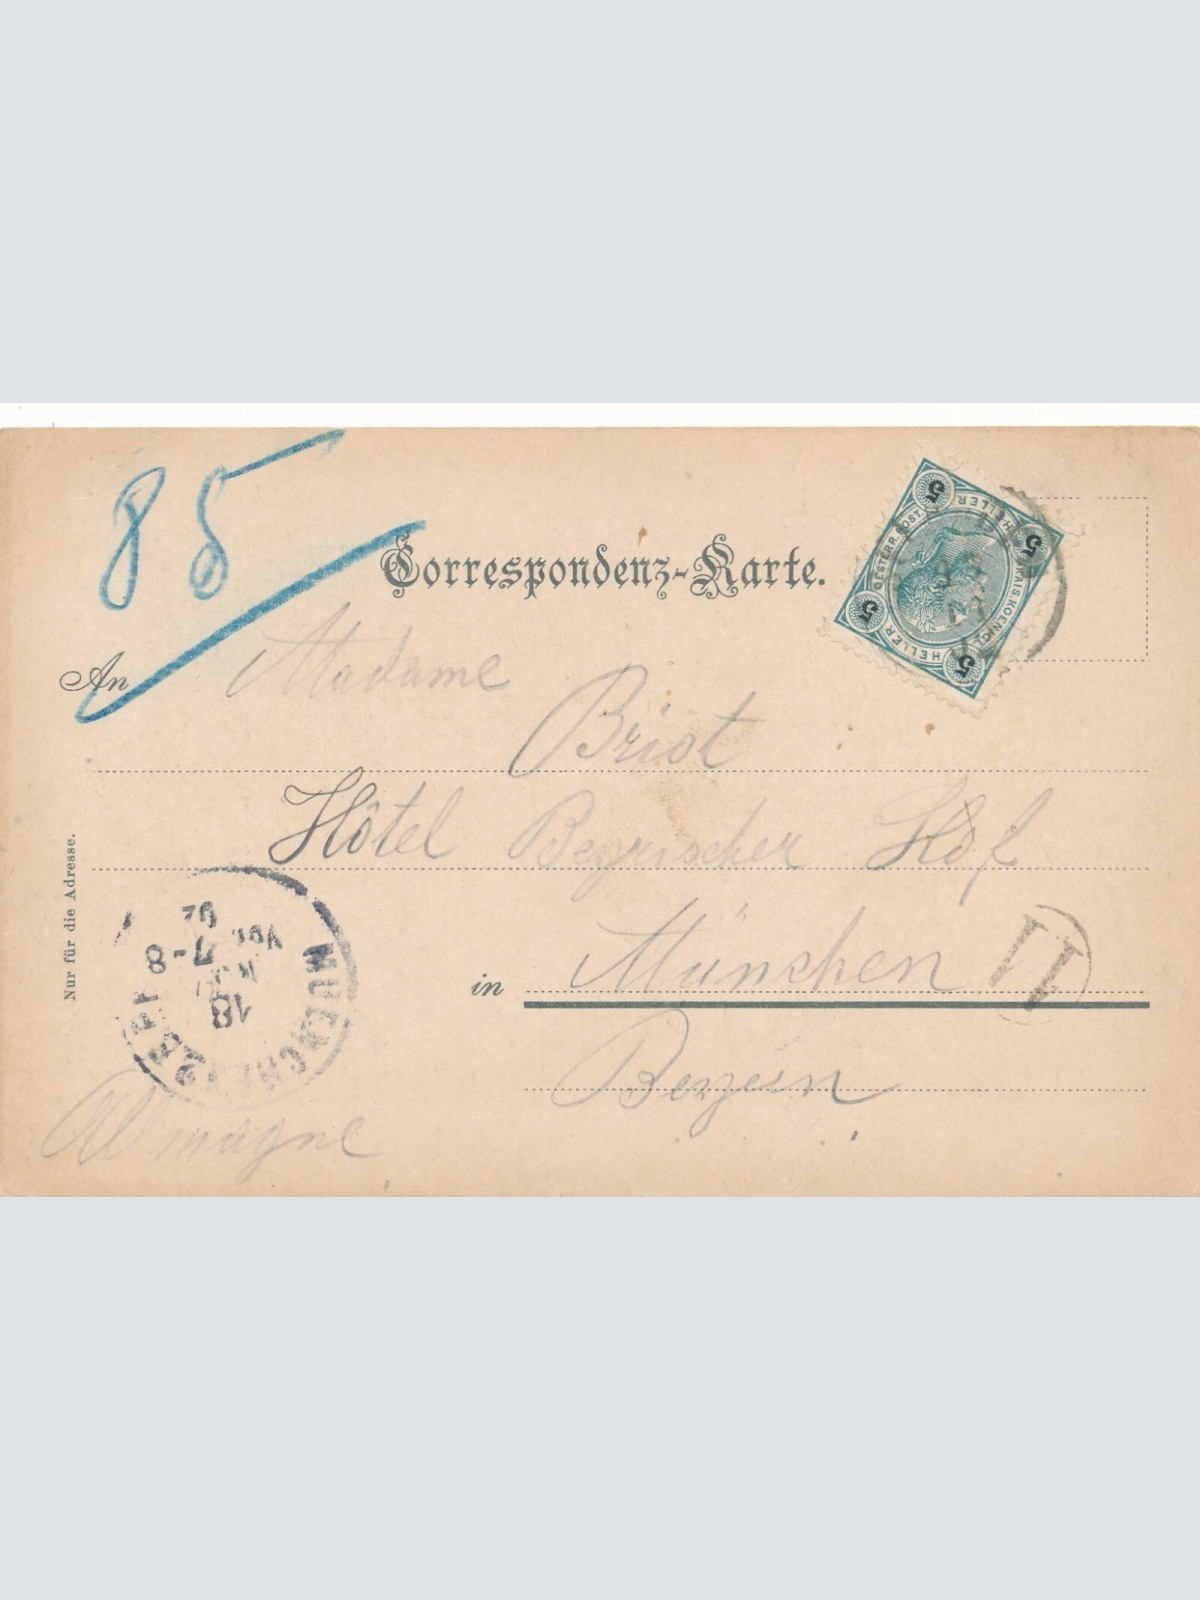 85
Correspondenz-Karte.
5 5 5 5
HELLER HELLER
OESTERR. POST.
KAIS. KOENIGL.
An Madame
Briot
Hôtel Beyrischer Hof
in München
Nur für die Adresse.
MUENCHEN
18
7-8
Vor.
02
11
Allemagne